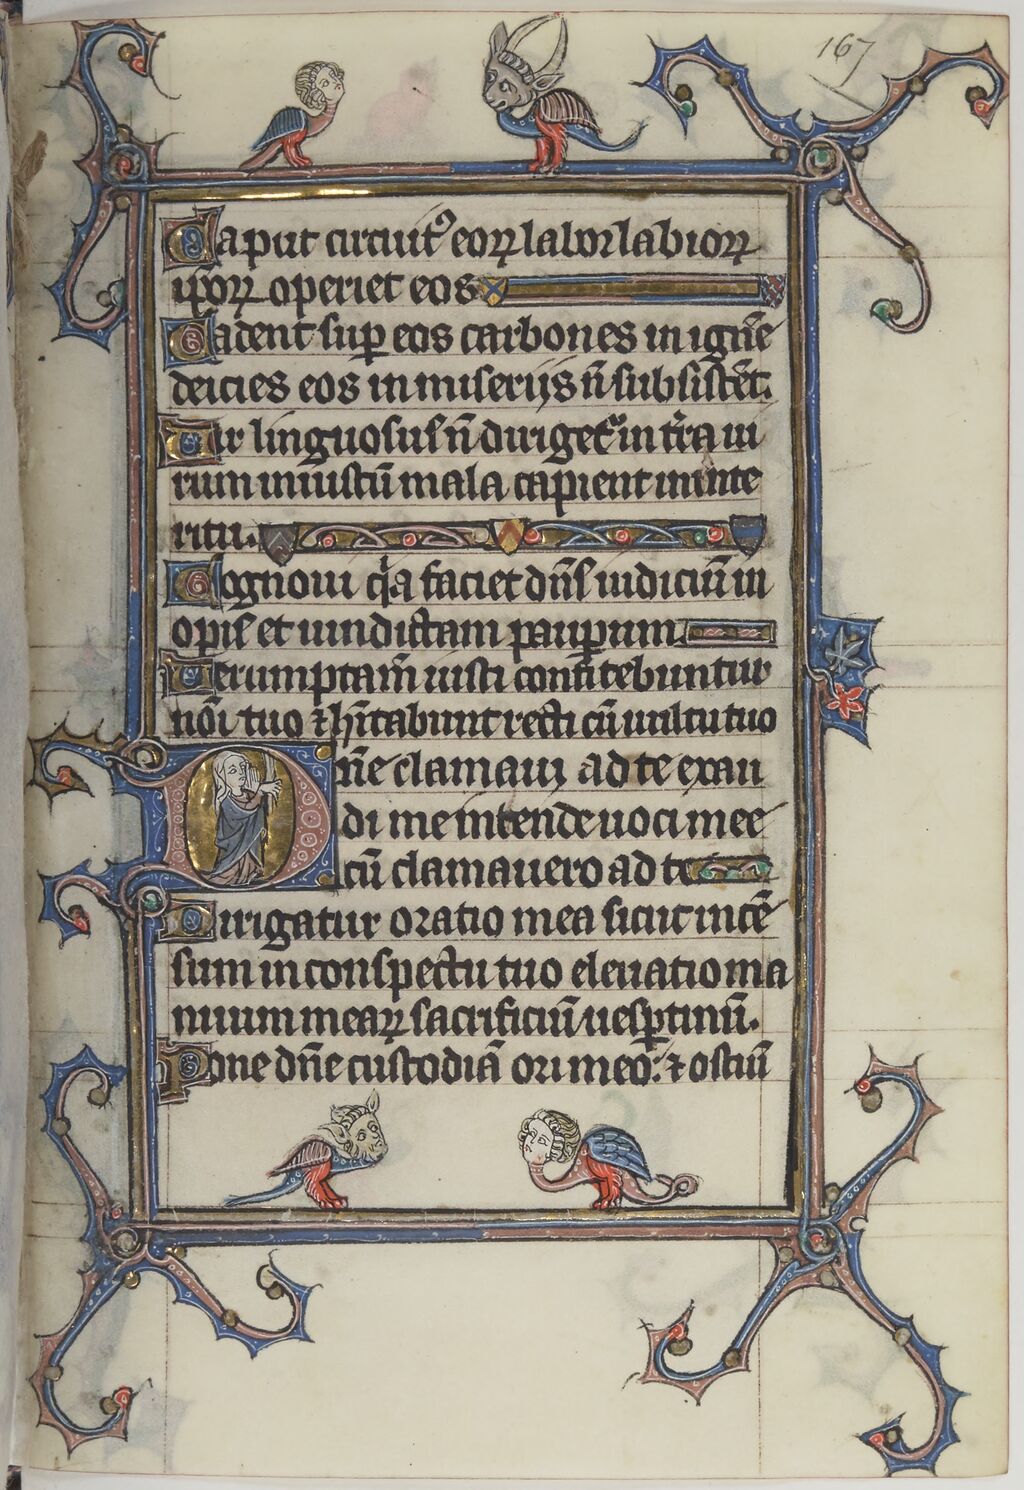 167
Caput circuitꝰ eoꝝ labor labioꝝ
ip̄oꝝ operiet eos
Cadent suꝑ eos carbones in igne᷑
deicies eos in miserijs n̄ subsistēt.
Vir linguosus n̄ dirigetᷣ in t̄ra ui
rum iniustū mala capient in inte
ritu.
Cognoui qͥa faciet dn̄s iudiciū in
opis et uindictam pauꝑum.
Verumptam̄ iusti confitebuntur
nōi tuo ⁊ hītabunt recti cū uultu tuo
Dn̄e clamaui ad te exau
di me intende uoci mee
cū clamauero ad te
Dirigatur oratio mea sicut incē
sum in conspectu tuo eleuatio ma
nuum meaꝝ sacrificiū uesꝑtinū.
Pone dn̄e custodiā ori meo: ⁊ ostiū